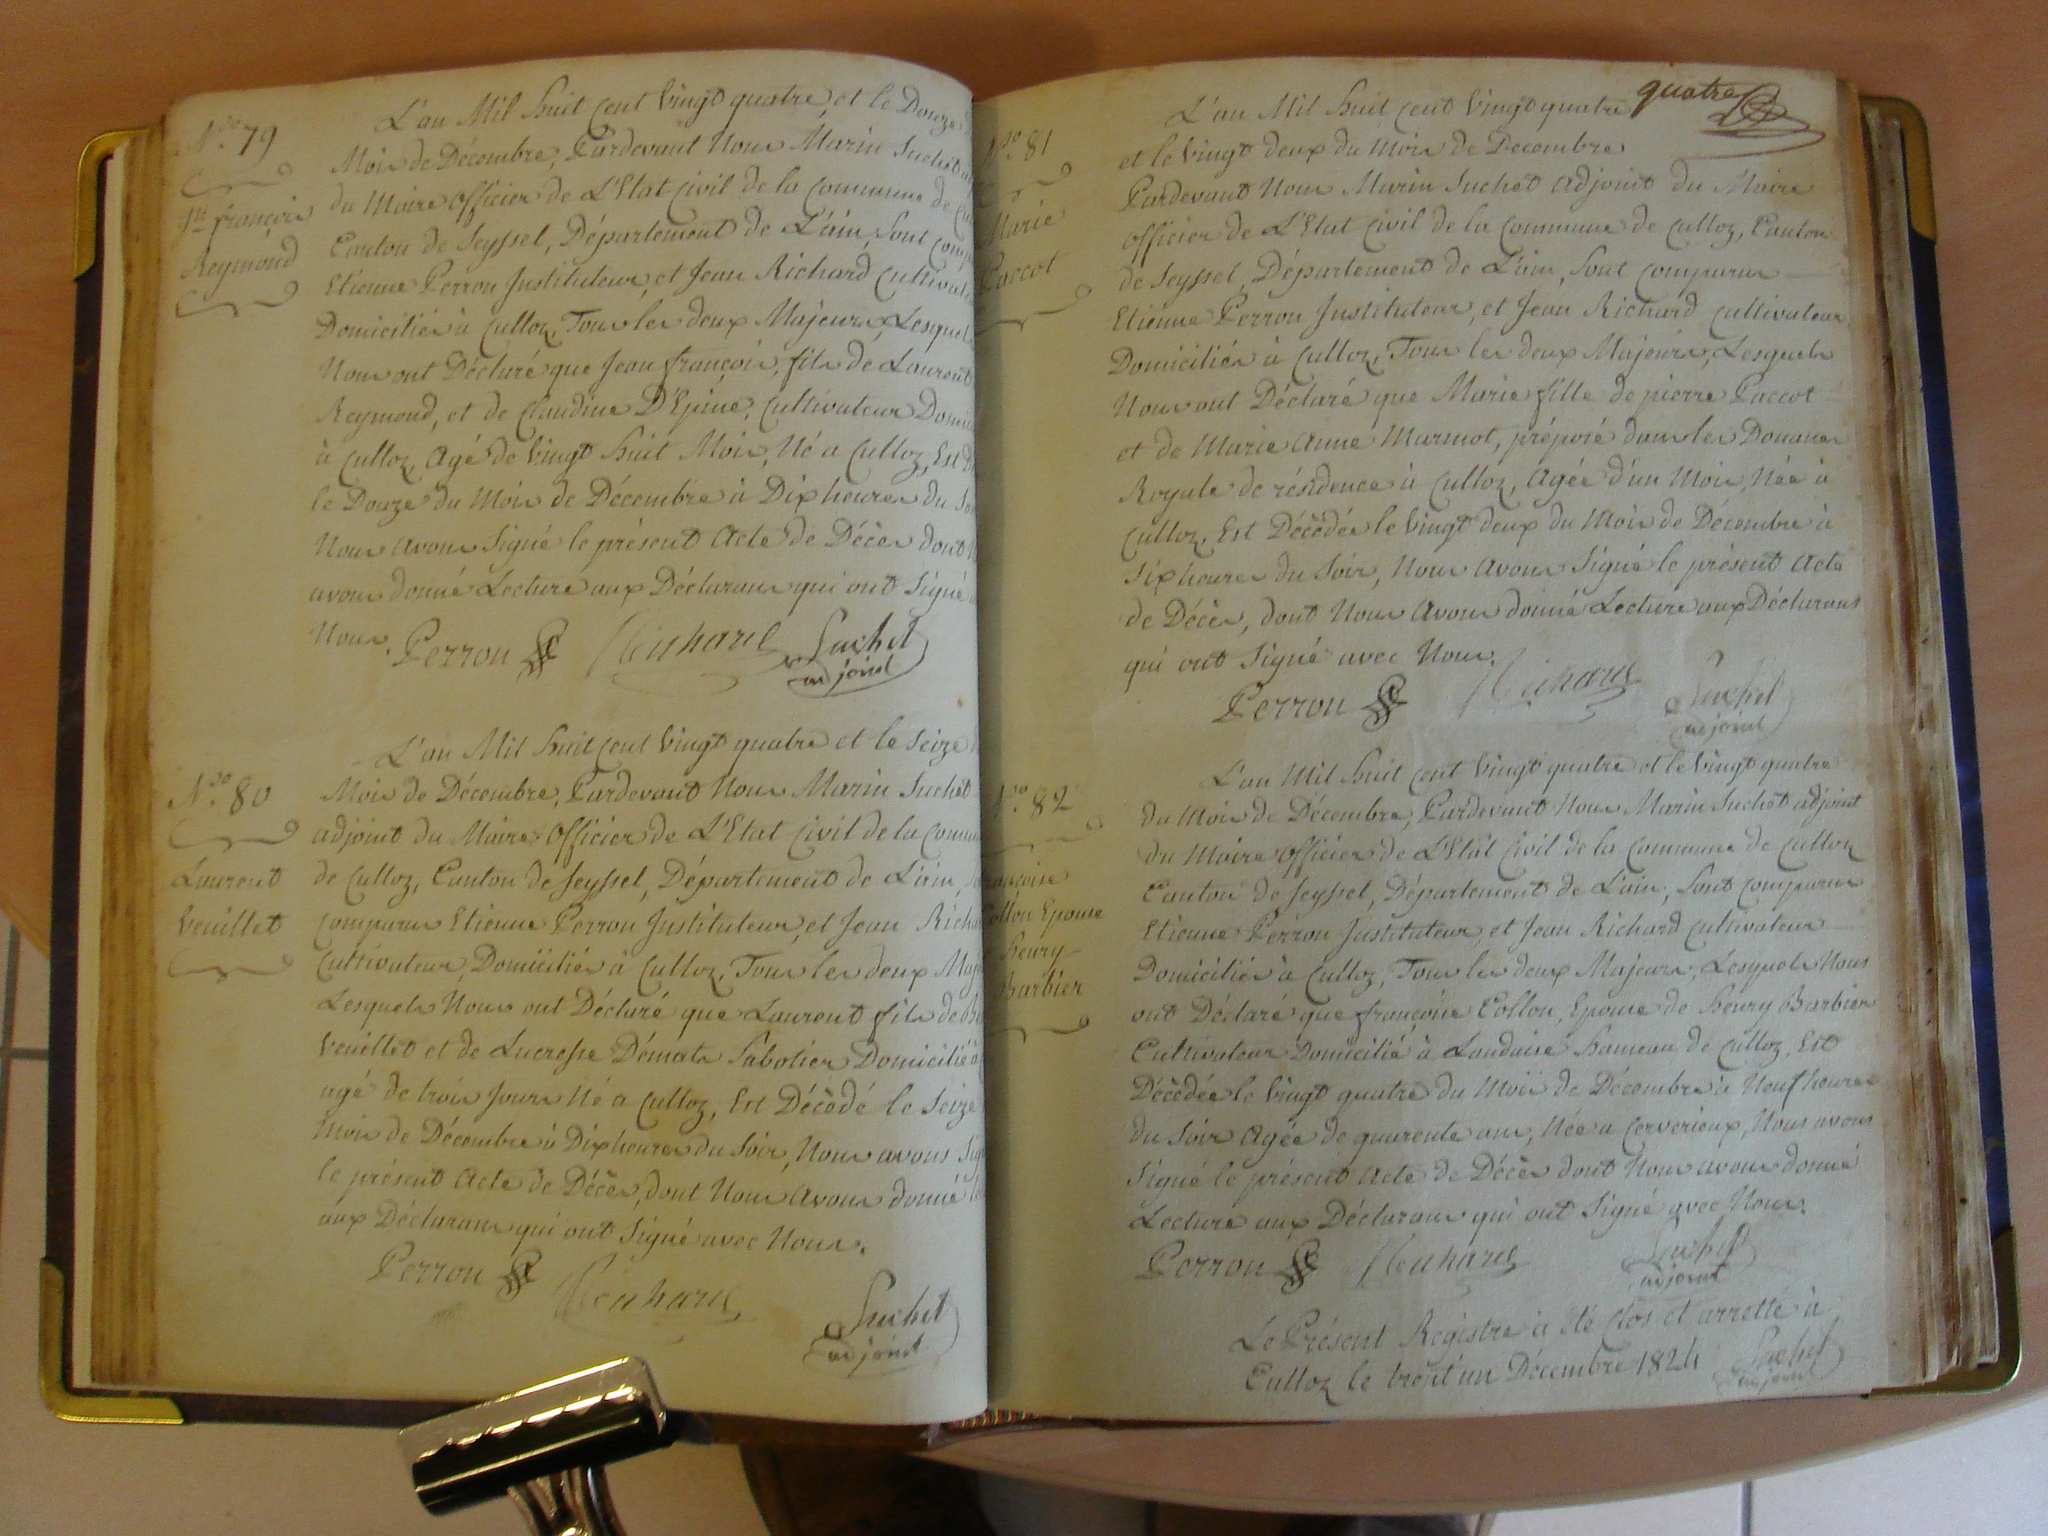 N.ro 79
Jn françois
Reymond
L'an Mil huit cent vingt quatre, et le Douze
Mois de Décembre, Pardevant Nous Marin Suchet
du Maire officier de L'Etat Civil de la Commune de
Canton de Seyssel, Département de L'ain, Sont
Etienne Perron Instituteur, et Jean Richard
Domiciliés à Culloz, Tous les deux Majeurs, Lesquels
Nous ont Déclaré que Jean françois, fils de Laurent
Reymond, et de Claudine D'Epine, Cultivateur
à Culloz, Agé de vingt huit Mois, Né a Culloz, Est
le Douze du Mois de Décembre à Dix heures du
Nous avons Signé le présent Acte de Décès dont
avons donné Lecture aux Déclarans qui ont Signé
Nous.
Perron Richard Suchet
adjoint
N.ro 80
Laurent
Veuillet
L'an Mil huit cent vingt quatre et le Seize
Mois de Décembre, Pardevant Nous Marin Suchet
adjoint du Maire Officier de L'Etat Civil de la
de Culloz, Canton de Seyssel, Département de L'ain,
comparus Etienne Perron Instituteur, et Jean
Cultivateur, Domiciliés à Culloz, Tous les deux
Lesquels Nous ont Déclaré que Laurent fils de
Veuillet et de Lucresse Démata Sabotier Domicilié à
agé de trois Jours Né a Culloz, Est Décèdé le Seize
mois de Décembre à Dix heures du Soir, Nous avons
le présent Acte de Décès, dont Nous Avons donné
aux Déclarans qui ont Signé avec Nous.
Perron Richard
Suchet
adjoint
quatre
81
Marie
Paccot
L'an Mil huit cent vingt quatre
et le vingt deux du Mois de Decembre
Pardevant Nous Marin Suchet Adjoint du Maire
officier de L'Etat Civil de la Commune de Culloz, Canton
de Seyssel, Département de L'ain, Sont comparus
Etienne Perron Instituteur, et Jean Richard Cultivateur
Domiciliés à Culloz, Tous les deux Majeurs, Lesquels
Nous ont Déclaré que Marie fille de pierre Paccot
et de Marie Anne Marmot, préposé dans les Douanes
Royale de résidence à Culloz, Agée d'un Mois, Née à
Culloz, Est Décèdée le vingt deux du Mois de Décembre à
Six heures du Soir, Nous Avons Signé le présent Acte
de Décès, dont Nous Avons donné Lecture aux Déclarans
qui ont Signé avec Nous.
Perron Richard Suchet
adjoint
82
Epouse
henry
Barbier
L'an Mil huit cent vingt quatre et le vingt quatre
du Mois de Décembre, Pardevant Nous Marin Suchet adjoint
du Maire officier de L'Etat Civil de la Commune de Culloz
Canton de Seyssel, Département de L'ain, Sont comparus
Etienne Perron Instituteur, et Jean Richard Cultivateur
Domiciliés à Culloz, Tous les deux Majeurs, Lesquels Nous
ont Déclaré que françoise Collon, Epouse de henry Barbier
Cultivateur Domicilié à Landaise hameau de Culloz, Est
Décèdée le vingt quatre du Mois de Décembre à Neuf heures
du Soir Agée de quarente ans, Née a Cerverieux, Nous avons
Signé le présent Acte de Décès dont Nous avons donné
Lecture aux Déclarans qui ont Signé avec Nous.
Perron Richard Suchet
adjoint
Le Présent Registre à été Clos et arretté à
Culloz le trent'un Décembre 1824 Suchet
adjoint